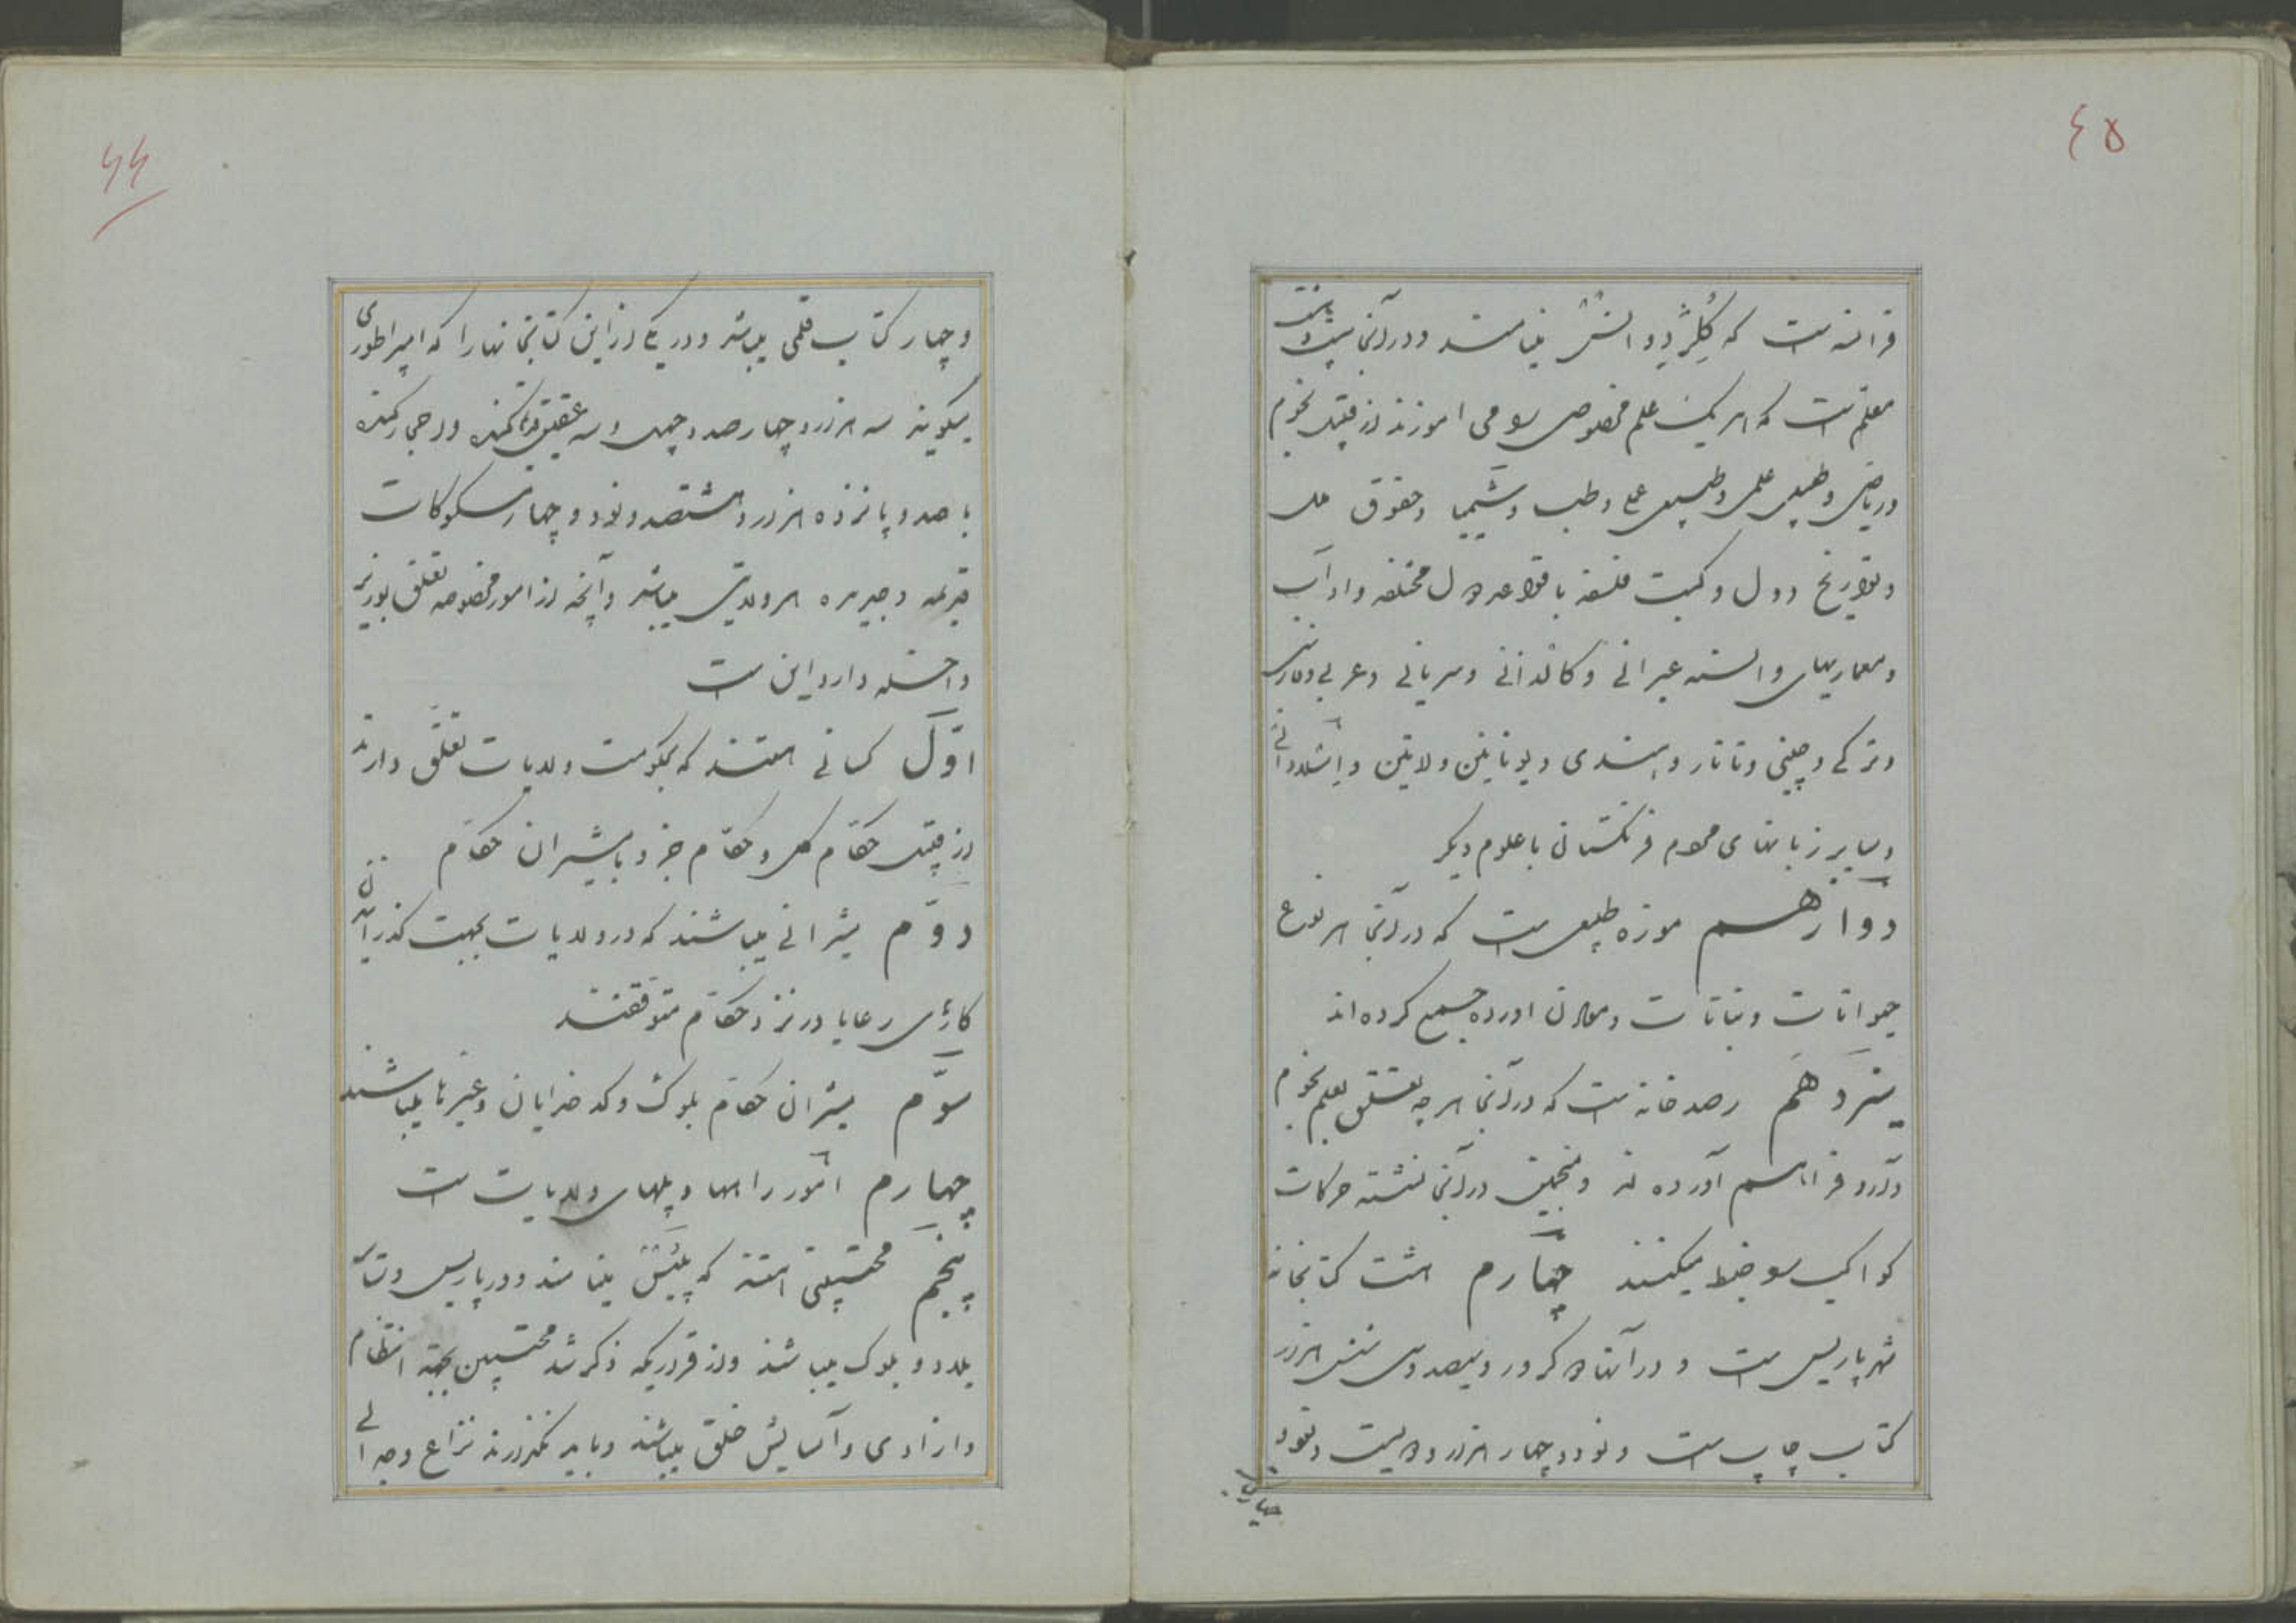 ٤٥
فرانسه است که کُلِژ دِ دوانسْ مینامند و در آنجا بیست و هشت
معلم است که هر یک علم مخصوصی را می اموزند از قبیل نجوم
و ریاضی و طبیعی علمی و طبیعی عملی و طب و شیمیا و حقوق ملل
و تواریخ دول و حکمت فلسفه با قواعد دول مختلفه و اداب
و معماریهای و السنه عبرانی و کالدانی و سریانی و عربی و فارسی
و ترکی و چینی و تاتار و هندی و یونانین و لاتین و اسلاوانی
و سایر زبانهای مردم فرنگستان با علوم دیگر
دوازدهم موزه طبیعی است که در آنجا هر نوع
حیوانات و نباتات و معادن اورده جمع کرده اند
سیزدهم رصد خانه است که در آنجا هر چه تعلق بعلم نجوم
دارد فراهم آورده اند و منجمین در آنجا نشسته حرکات
کواکب را ضبط میکنند چهاردهم هشت کتابخانه
شهر پاریس است و در آنها دو کرور و سیصد و سی و شش هزار
کتاب چاپ است و نود و چهار هزار و دویست و نود
و چهار کتاب
٤٤
و چهار کتاب قلمی میباشد و در یکی از این کتابخانهها را که امپراطوری
میگویند سه هزار و چهار صد و چهل و سه عقیق کنده و احجار کنده
با صد و پانزده هزار و هشتصد و نود و چهار مسکوکات
قدیمه و جدیده هر ولایتی میباشد و آنچه از امور مخصوصه تعلق بوزیر
داخله دارد این است
اوّل کسانی هستند که بحکومت ولایات تعلّق دارند
از قبیل حکّام کل و حکّام جزو با مشیران حکّام
دوّم مشیرانی میباشند که در ولایات بجهت گذرانیدن
کارهای رعایا در نزد حکّام متوقفند
سوّم مشیران حکّام بلوک و کدخدایان و غیرها میباشند
چهارم امور راهها و پلهای ولایات است
پنجم محتسبینی هستند که پلیسْ مینامند و در پاریس و سایر
بلاد و بلوک میباشند و از قراریکه ذکر شد محتسبین بجهة انتظام
و ازادی و آسایش خلق میباشند و باید نگذارند نزاع و جدالی